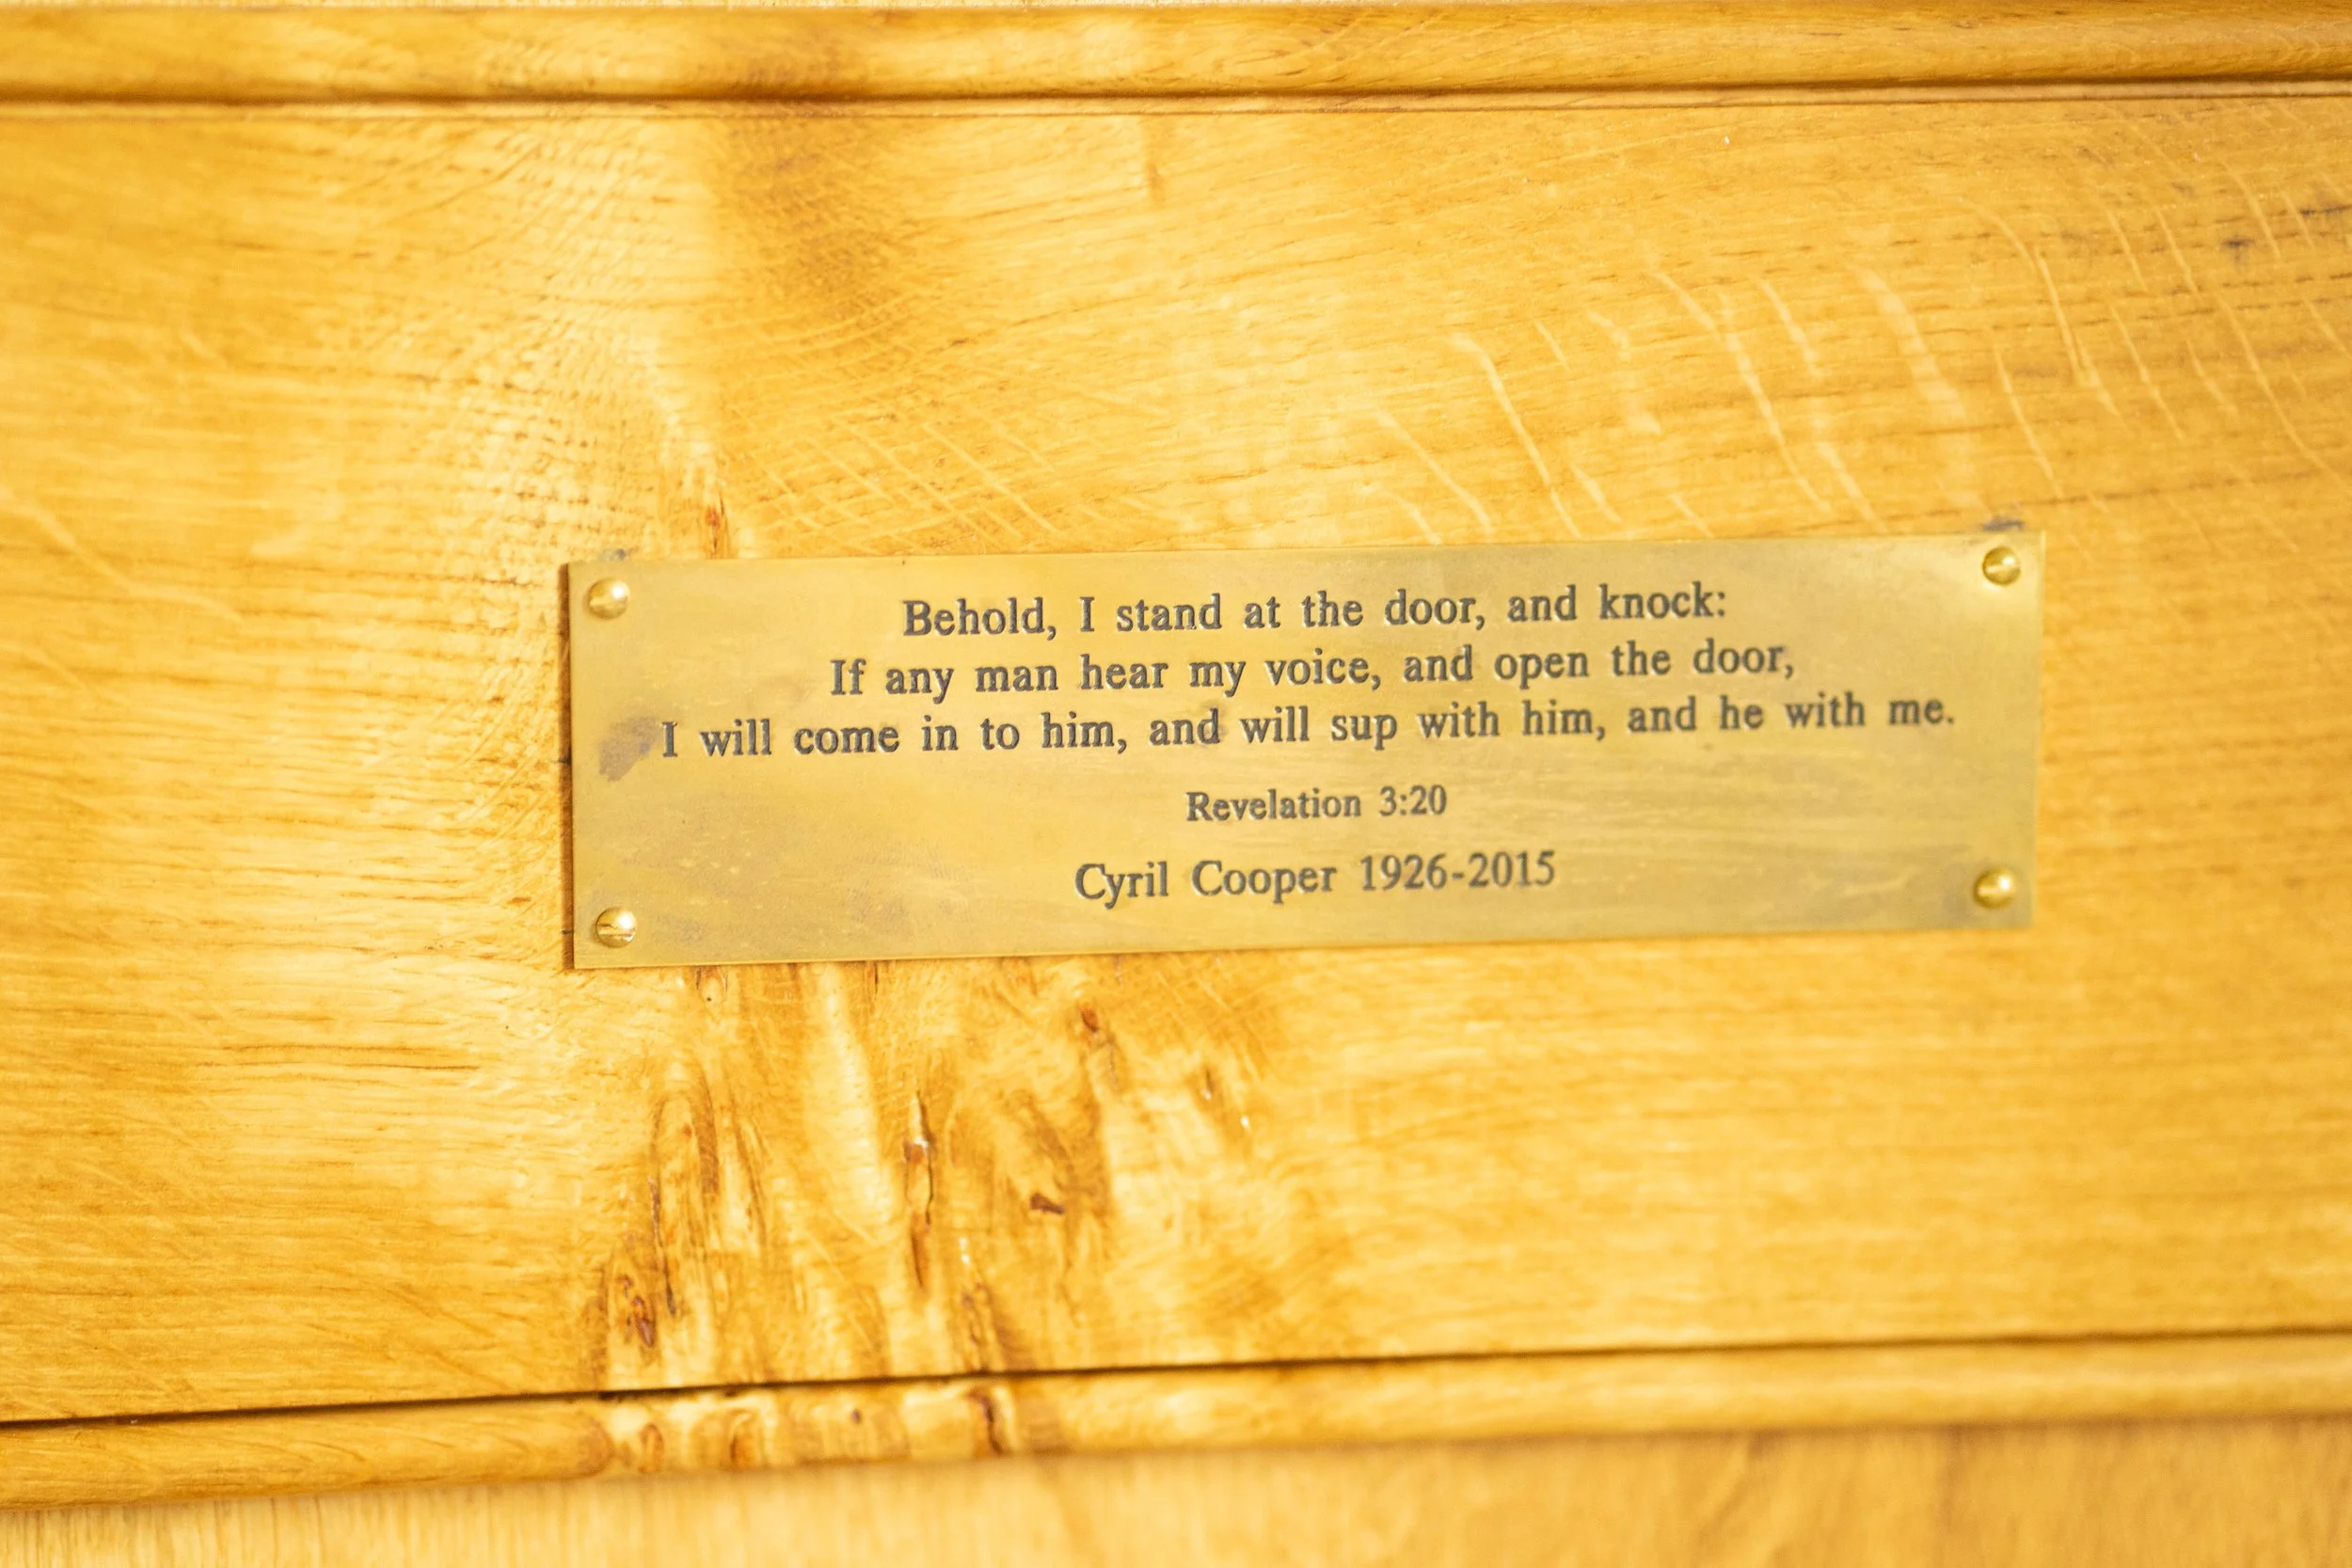 Behold, I stand at the door, and knock:
If any man hear my voice, and open the door,
I will come in to him, and will sup with him, and he with me.
Revelation 3:20
Cyril Cooper 1926-2015